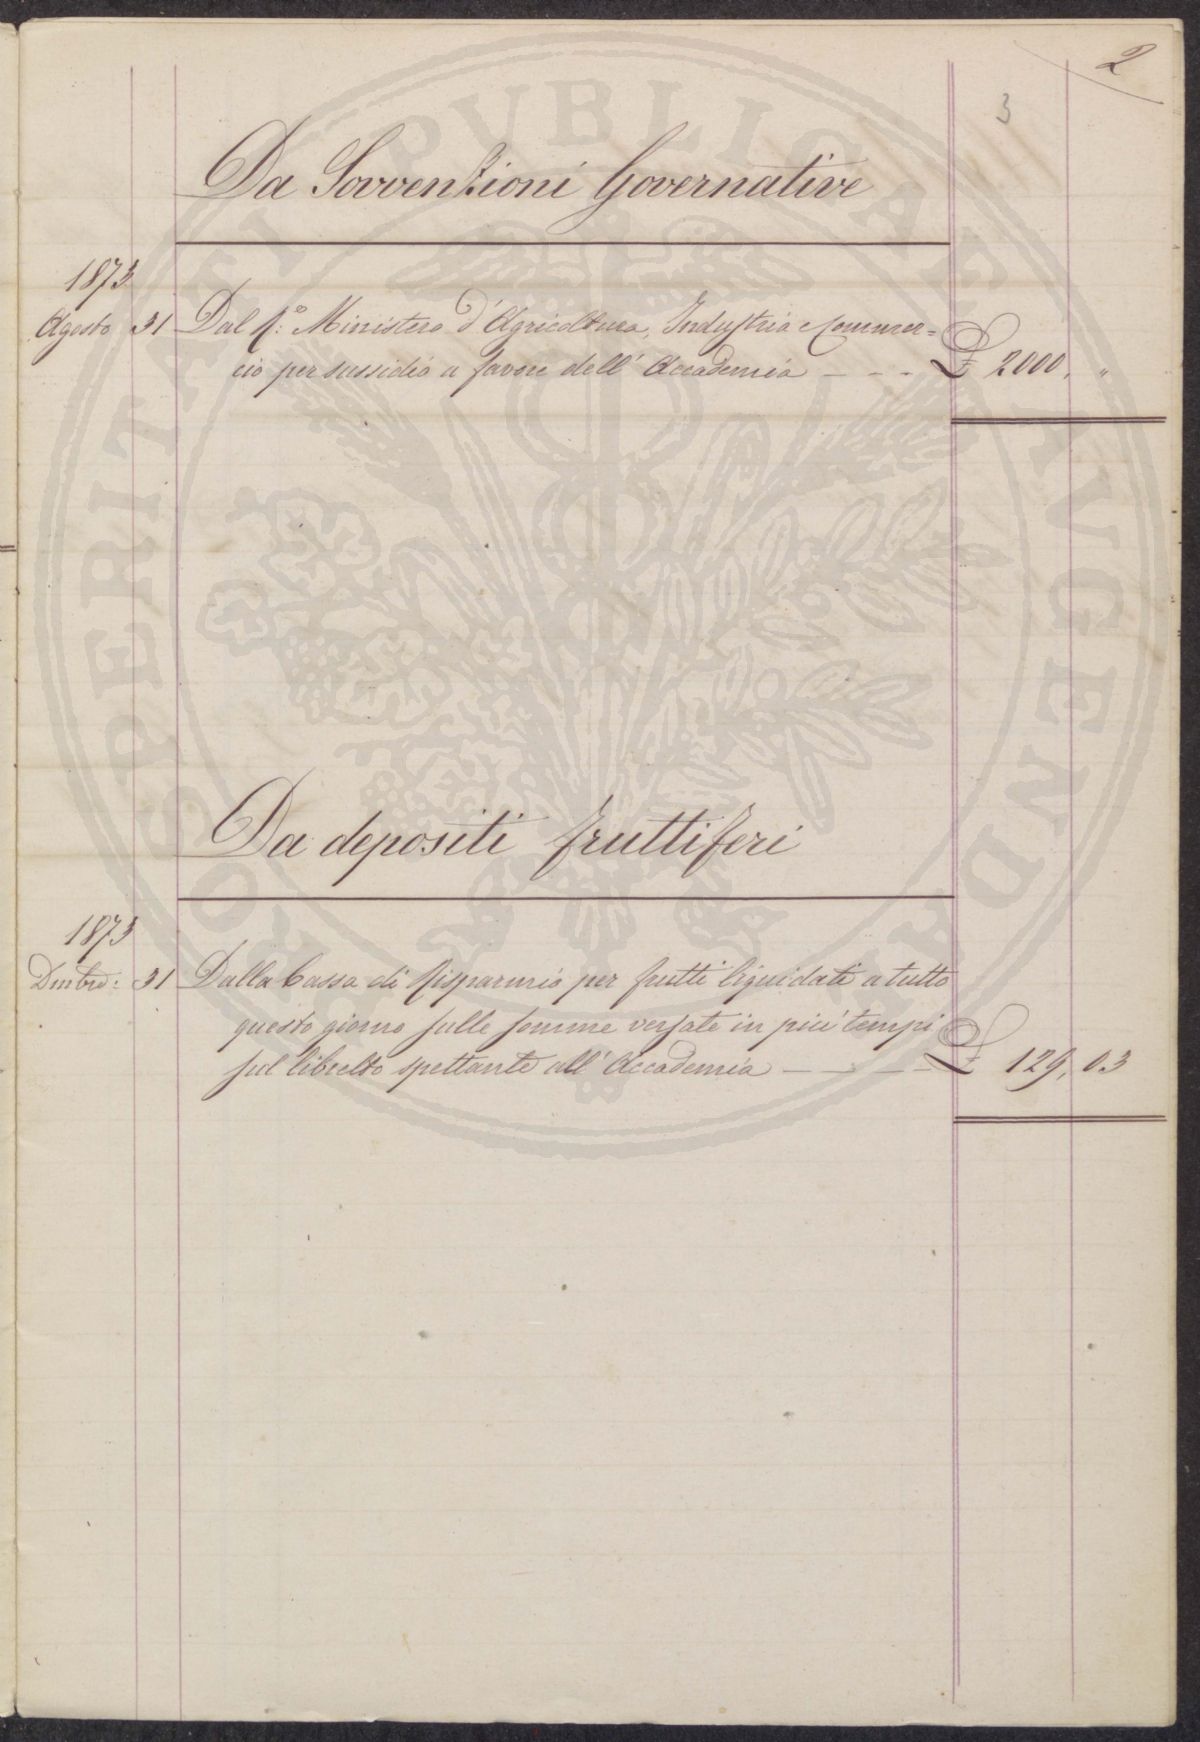 2
3
Da Sovvenzioni Governative
1873
Agosto 31 Dal R.° Ministero d'Agricoltura, Industria e Commer=
cio per sussidio a favore dell'Accademia — — - £ 2000, "
Da depositi fruttiferi
1873
Dmbre: 31 Dalla Cassa di Risparmio per frutti liquidati a tutto
questo giorno sulle somme versate in più tempi
sul libretto spettante all'Accademia — — — — £ 129, 03
PROSPERITATI PVBLICAE AVGENDAE